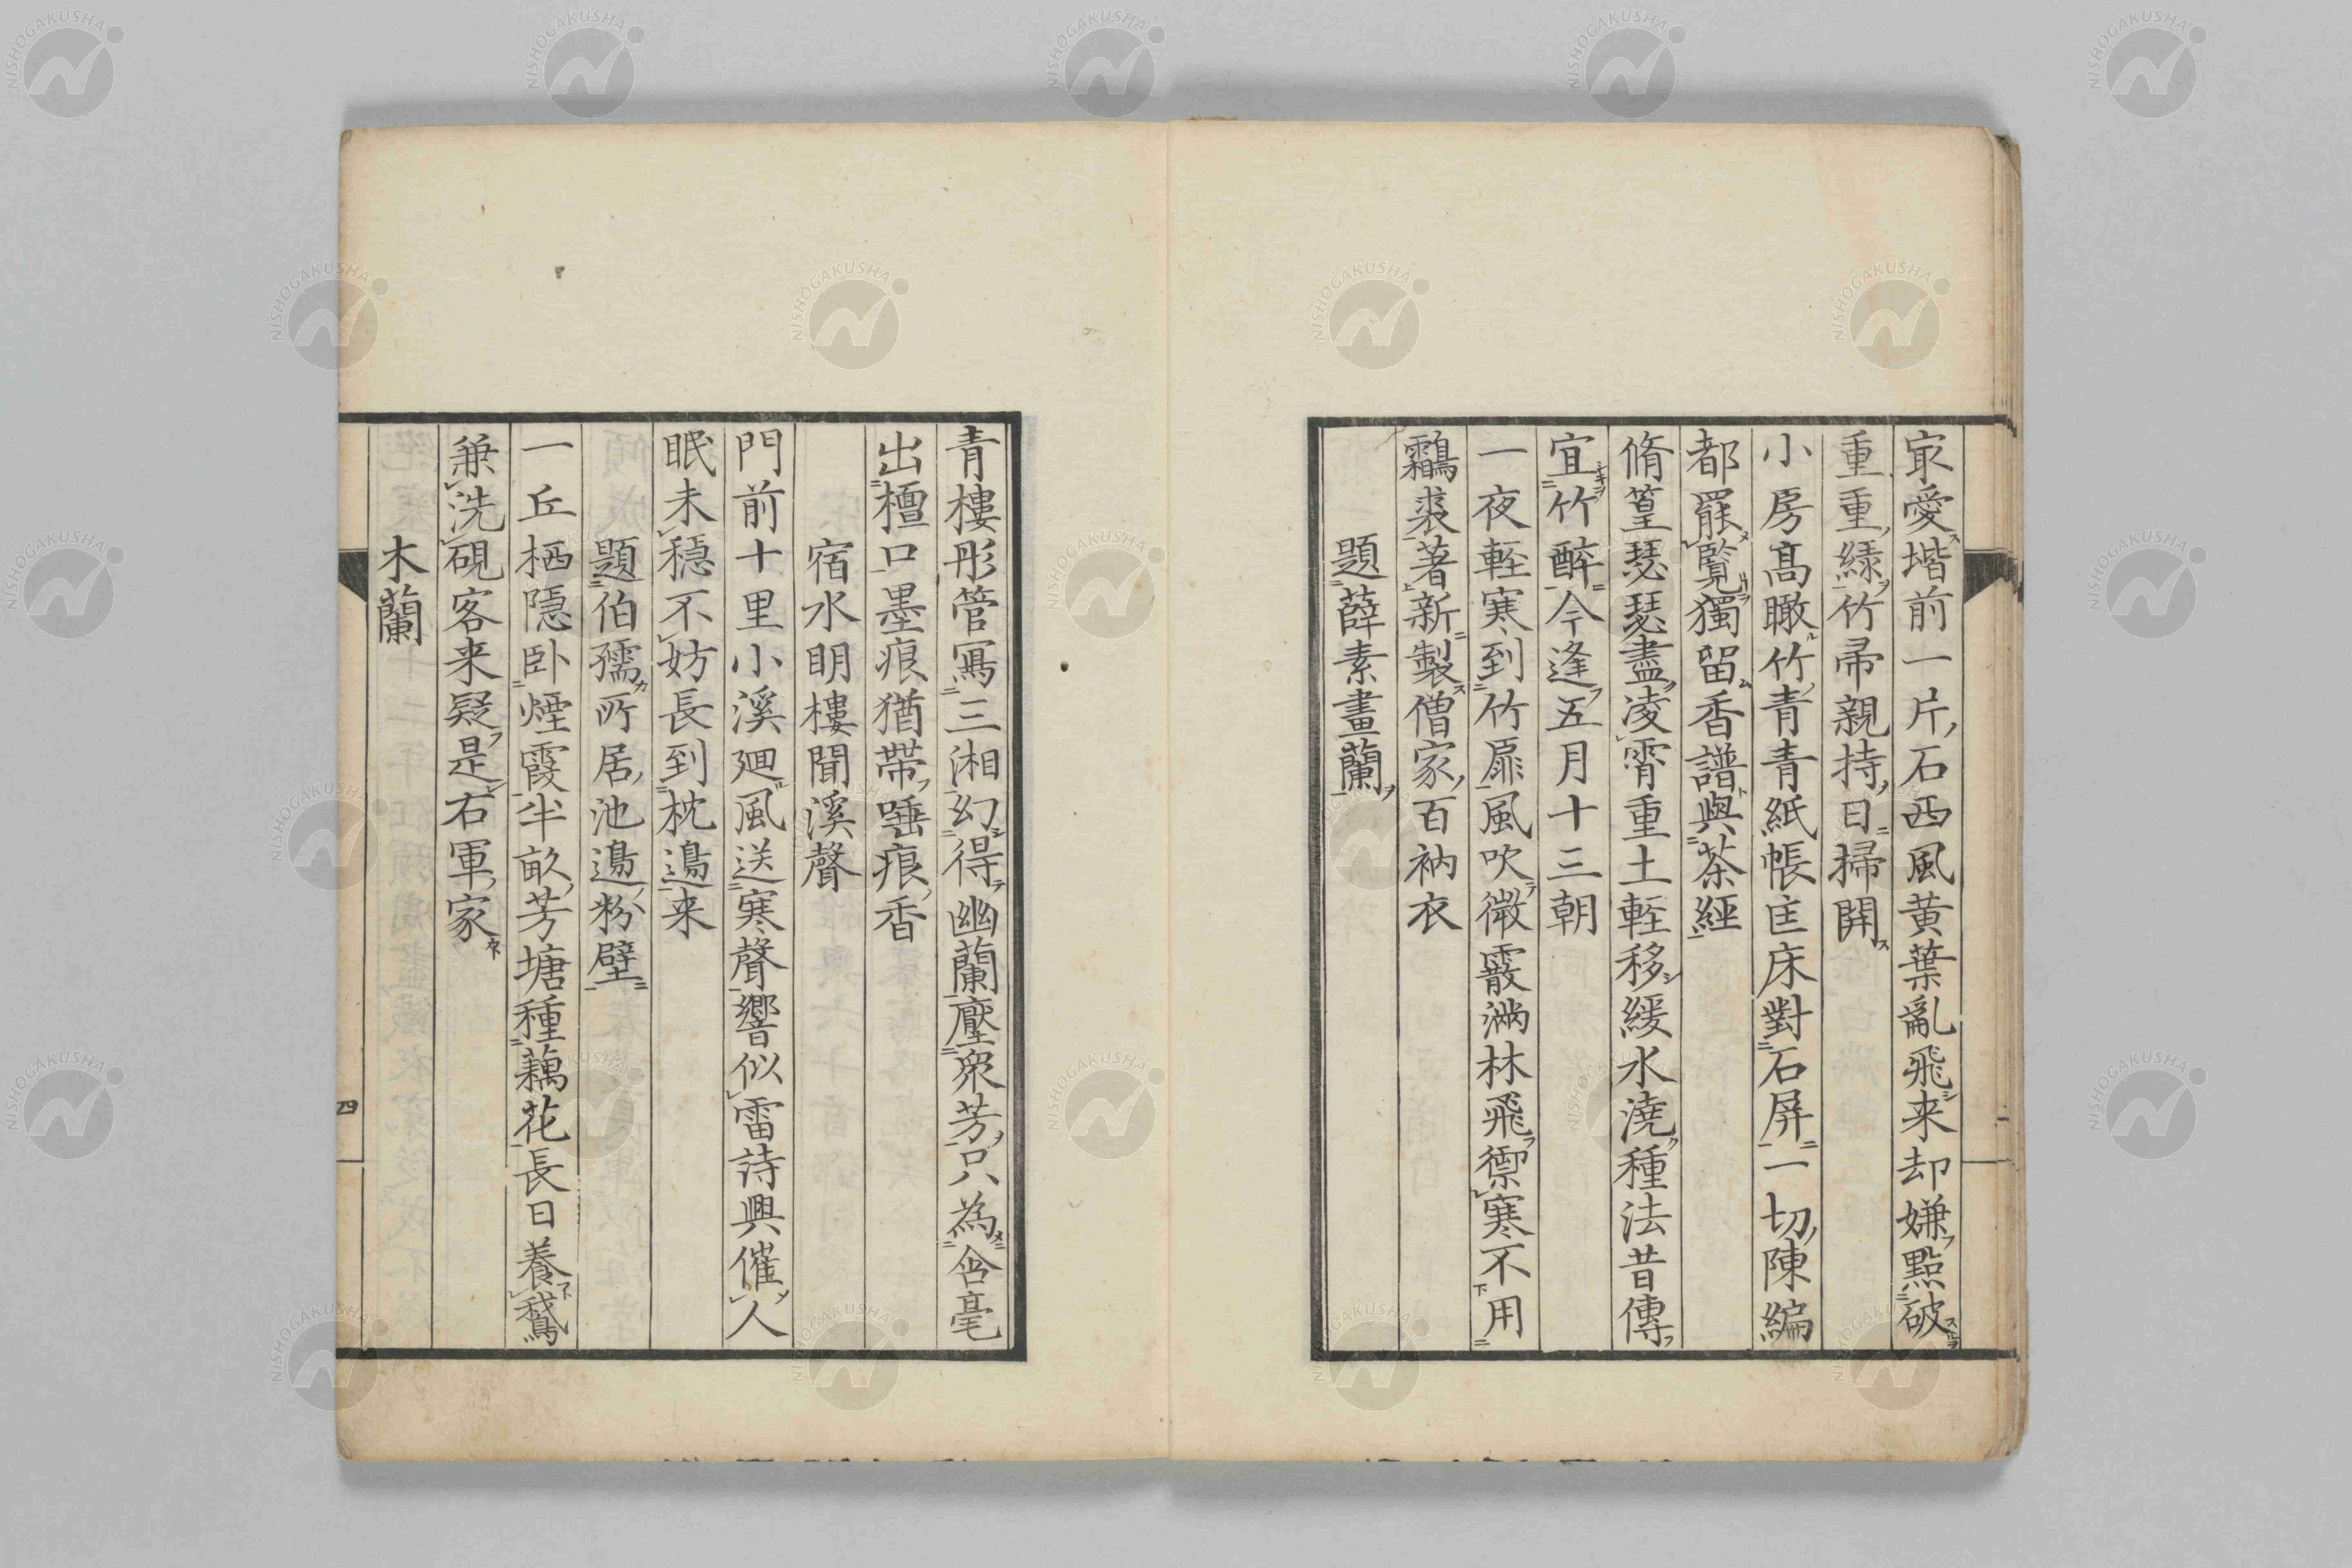 冣愛堦前一片石西風黄葉亂飛来却嫌點破
重重綠竹帚親持日掃開
小房髙瞰竹青青紙帳匡床對石屏一切陳編
都罷覧獨留香譜與茶經
脩篁瑟瑟盡凌霄重土輕移緩水澆種法昔傳
宜竹醉今逢五月十三朝
一夜輕寒到竹扉風吹微霰滿林飛禦寒不用
鸘裘著新製僧家百衲衣
題薛素畫蘭
青樓彤管寫三湘幻得幽蘭壓衆芳只為含毫
出檀口墨痕猶帶唾痕香
宿水明樓聞溪聲
門前十里小溪廻風送寒聲響似雷詩興催人
眠未穏不妨長到枕邉来
題伯孺所居池邉粉壁
一丘栖隠卧煙霞半畝芳塘種藕花長日養鵞
兼洗硯客来疑是右軍家
木蘭
四
NISHOGAKUSHA